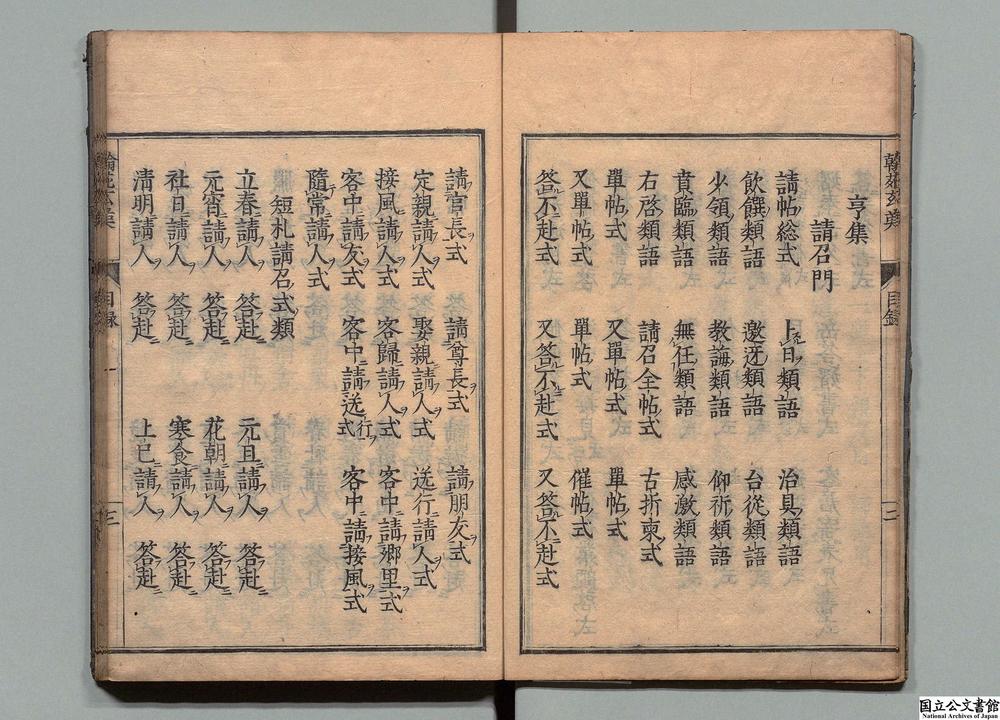 亨集
請召門
請帖総式 上日類語 治具類語
飲饌類語 邀迓類語 台從類語
少領類語 教誨類語 仰祈類語
賁臨類語 無任類語 感激類語
右啓類語 請召全帖式 古折柬式
單帖式 又單帖式 單帖式
又單帖式 單帖式 催帖式
答不赴式 又答不赴式 又答不赴式
目錄
二
請官長式 請尊長式 請朋友式
定親請人式 娶親請人式 送行請人式
接風請人式 客歸請人式 客中請鄉里式
客中請友式 客中請送行式 客中請接風式
隨常請人式
短札請召式類
立春請人 答赴 元旦請人 答赴
元宵請人 答赴 花朝請人 答赴
社日請人 答赴 寒食請人 答赴
清明請人 答赴 上巳請人 答赴
目録
三
国立公文書館
National Archives of Japan